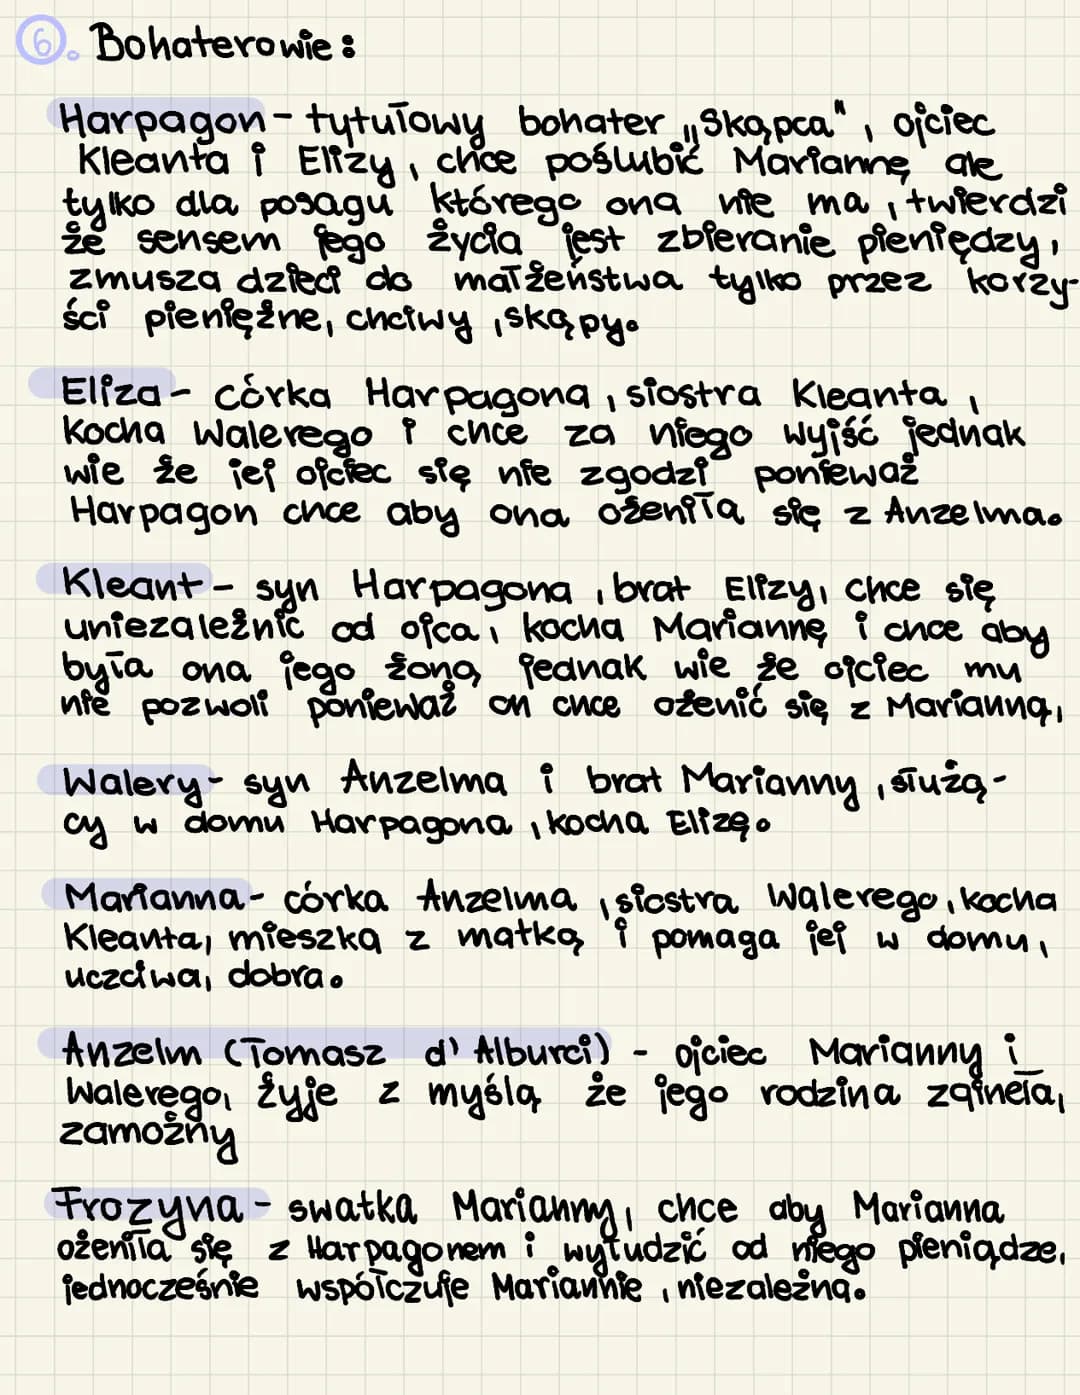 6. Bohaterowie:
Harpagon - tytułowy bohater „Skąpca", ojciec
Kleanta i Elizy, chce poślubić Mariannę ale
tylko dla posagu którego ona nie ma, twierdzi
że sensem jego życia jest zbieranie pieniędzy,
zmusza dzieci do małżeństwa tylko przez korzy-
ści pieniężne, chciwy, skąpy.
Eliza - córka Harpagona, siostra Kleanta,
kocha Walerego i chce za niego wyjść jednak
wie że jej ojciec się nie zgodzi ponieważ
Harpagon chce aby ona ożeniła się z Anzelma.
Kleant - syn Harpagona, brat Elizy, chce się
uniezależnić od ojca, kocha Mariannę i chce aby
była ona jego żoną jednak wie że ojciec mu
nie pozwoli ponieważ on chce ożenić się z Marianną,
Walery - syn Anzelma i brat Marianny, służą-
cy w domu Harpagona, kocha Elizę.
Marianna - córka Anzelma, siostra Walerego, kocha
Kleanta, mieszka z matką i pomaga jej w domu,
uczciwa, dobra.
Anzelm (Tomasz d' Alburci) - ojciec Marianny i
Walerego, żyje z myślą że jego rodzina zginęła,
zamożny
Frozyna - swatka Marianny, chce aby Marianna
ożeniła się z Harpagonem i wyłudzić od niego pieniądze,
jednocześnie współczuje Mariannie, niezależna.